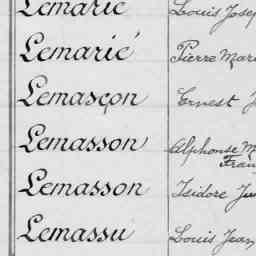 Lemarié Louis
Lemarié Pierre
Lemasçon Ernest
Lemasson Alphonse
Lemasson Isidore
Lemassu Louis Jean